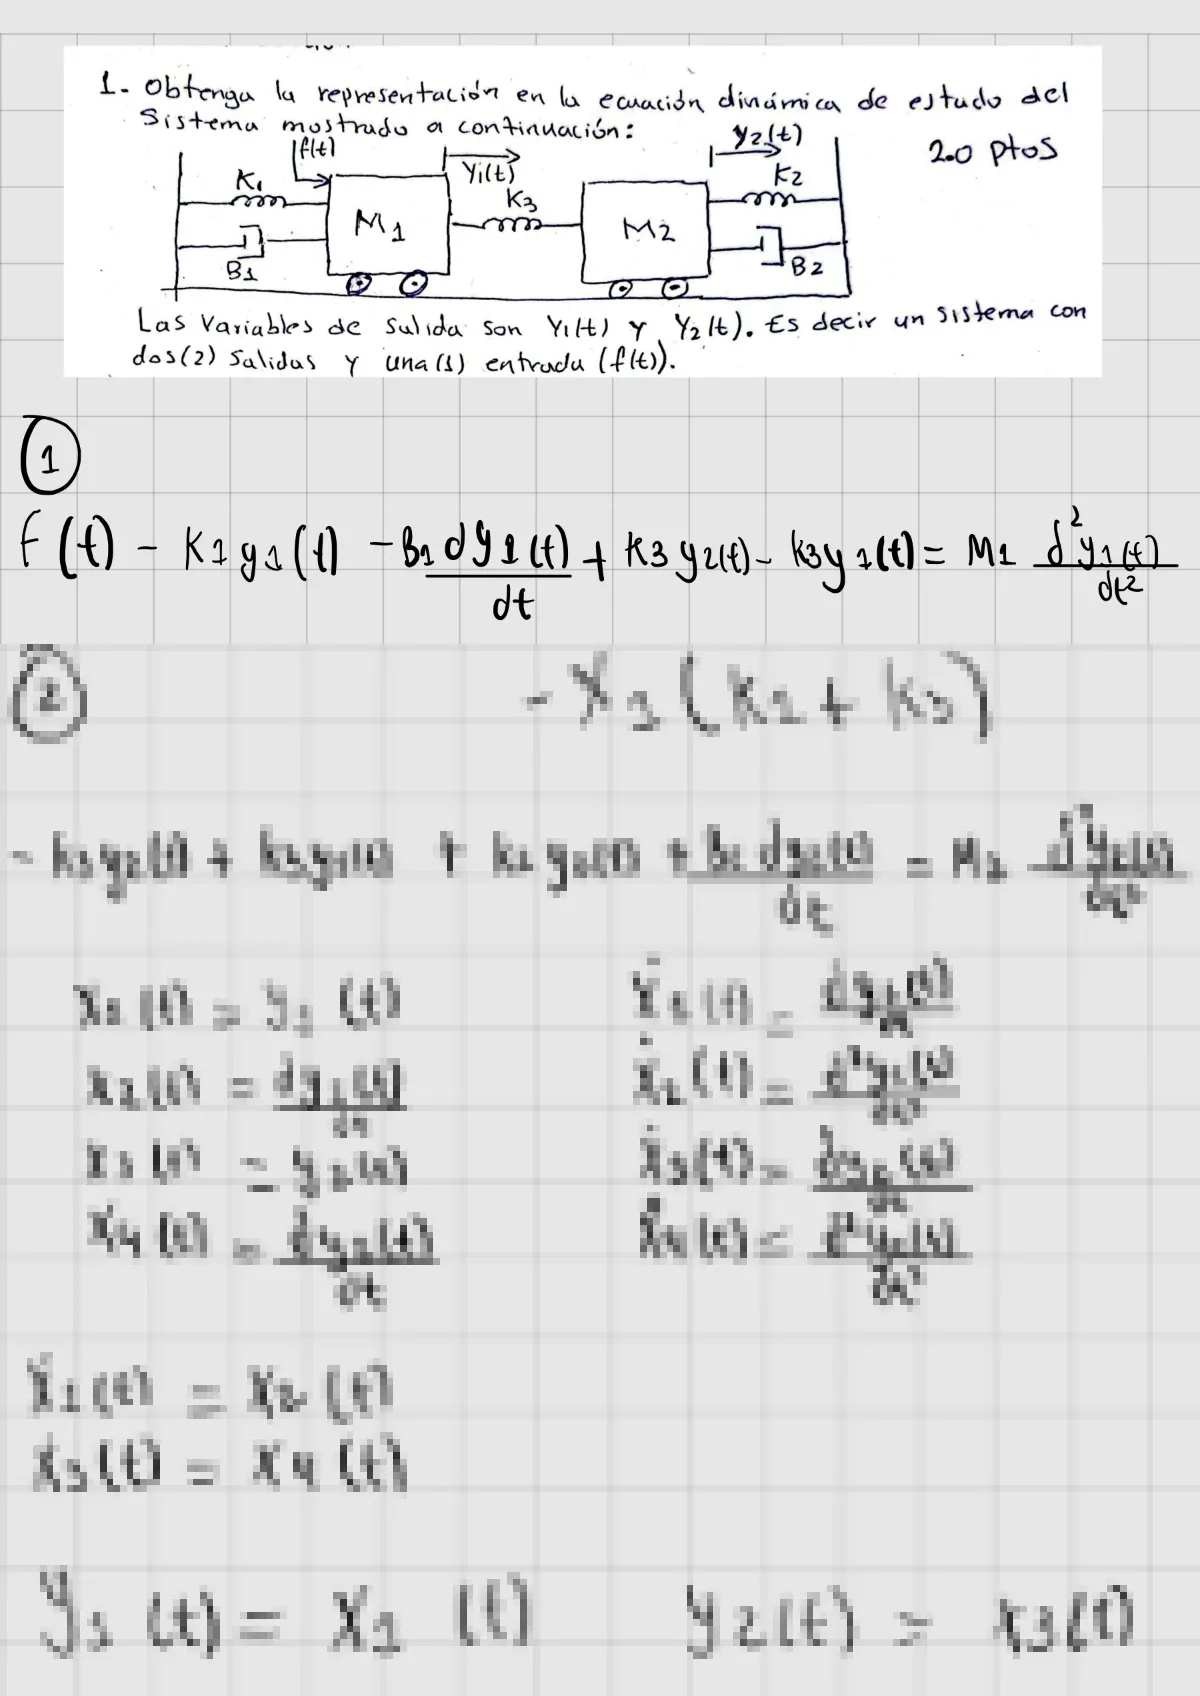 1. Obtenga la representación en la ecuación dinámica de estado del
Sistema mostrado a continuación:
2.0 ptos
f(t)
Y1(t)
Y2(t)
K1
K3
K2
M1
M2
B1
B2
Las Variables de salida son Y1(t) y Y2(t). Es decir un sistema con
dos(2) salidas y una(1) entrada (f(t)).
1
F(t) - K1y1(t) - B1 dy1(t)/dt + K3y2(t) - K3y1(t) = M1 d²y1(t)/dt²
2
-X1(K1+K3)
- K3y2(t) + K3y1(t) + K2y2(t) + B2 dy2(t)/dt = M2 d²y2(t)/dt²
X1(t) = y1(t)
Ẋ1(t) = dy1(t)/dt
X2(t) = dy1(t)/dt
Ẋ2(t) = d²y1(t)/dt²
X3(t) = y2(t)
Ẋ3(t) = dy2(t)/dt
X4(t) = dy2(t)/dt
Ẋ4(t) = d²y2(t)/dt²
Ẋ1(t) = X2(t)
Ẋ3(t) = X4(t)
y1(t) = X1(t)
y2(t) = X3(t)